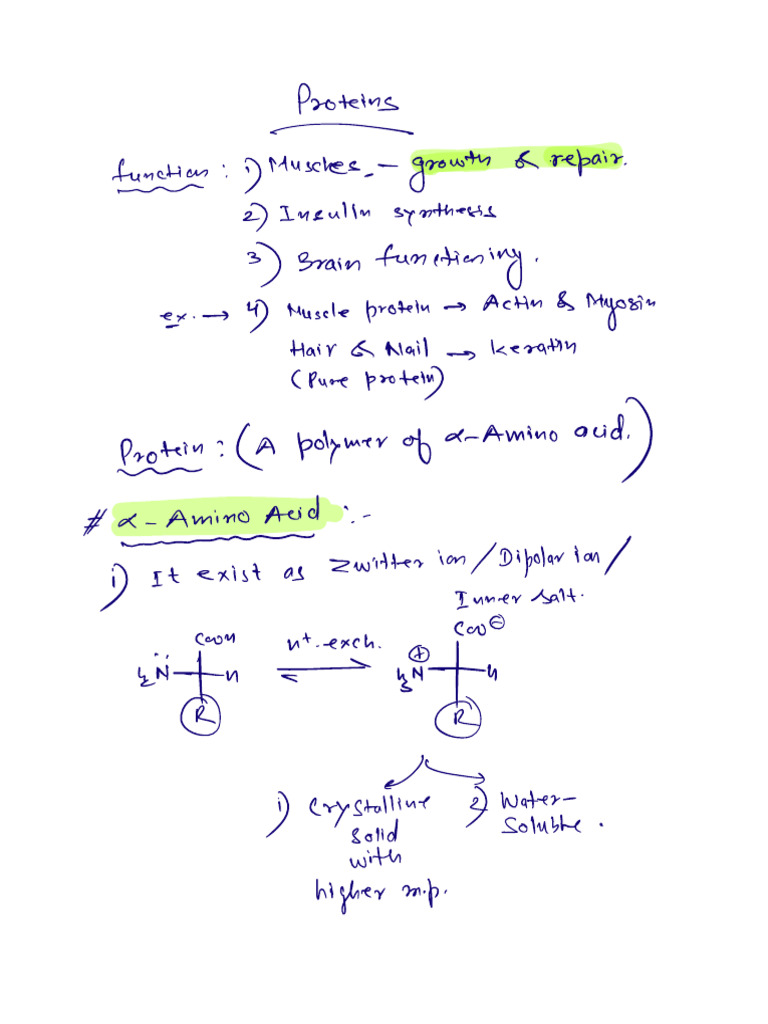 Proteins
function : 1) Muscles - growth & repair.
2) Insulin synthesis
3) Brain functioning.
ex. → 4) Muscle protein → Actin & Myosin
Hair & Nail → Keratin
(Pure protein)
Protein : (A polymer of α-Amino acid.)
# α-Amino Acid :-
i) It exist as Zwitter ion / Dipolar ion /
Inner salt.
COOH H⁺-exch. COO⊖
H₂N̈ H ⇌ H₃N⊕ H
R R
1) Crystalline 2) Water-
solid soluble.
with
higher m.p.